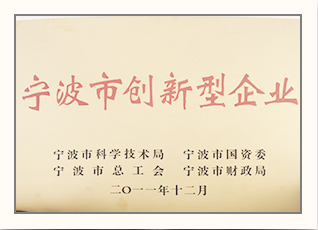 宁波市创新型企业
宁波市科学技术局 宁波市国资委
宁波市总工会 宁波市财政局
二〇一一年十二月